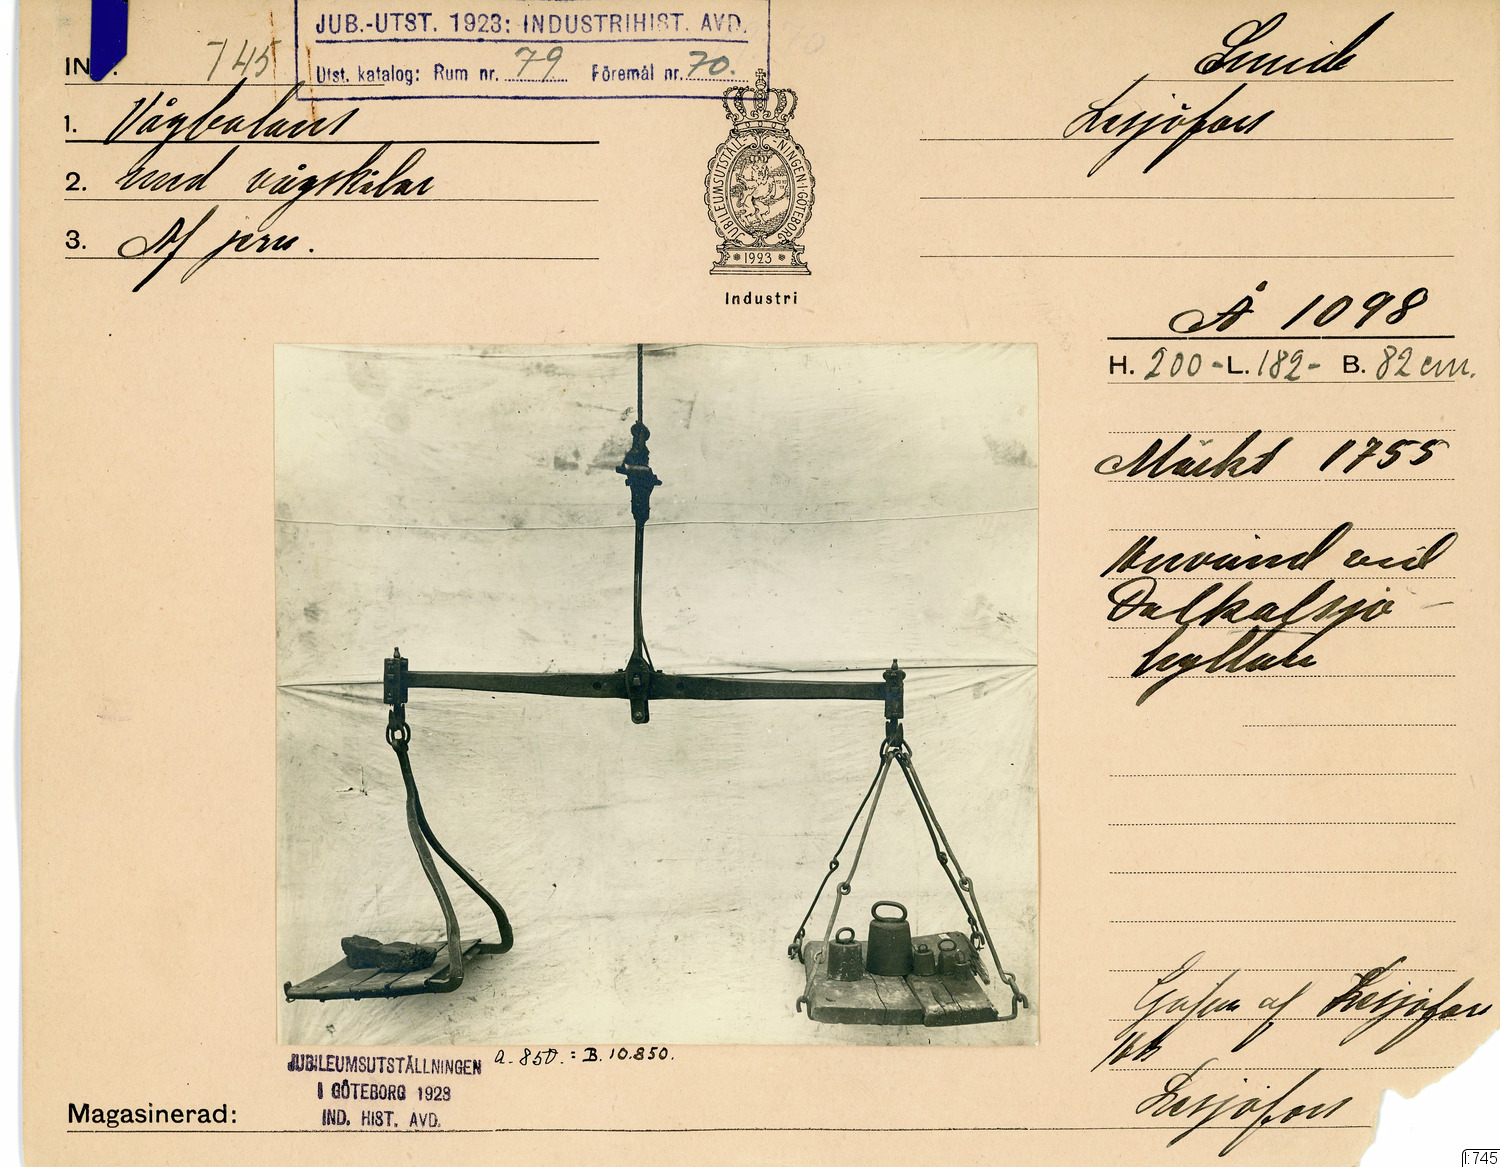 JUB.-UTST. 1923: INDUSTRIHIST. AVD.
Utst. katalog: Rum nr. 79 Föremål nr. 70.
IN 745
1. Vågbalans
2. med vågskålar
3. Af jern.
JUBILEUMSUTSTÄLLNINGEN I GÖTEBORG
1923
Industri
Smide
Lesjöfors
Å 1098
H. 200 - L. 182 - B. 82 cm.
Märkt 1755
Använd vid
Dalkalsjö-
hyttan
Gåfva af Lesjöfors
Ab
Lesjöfors
a. 850. : B. 10.850.
JUBILEUMSUTSTÄLLNINGEN
I GÖTEBORG 1923
IND. HIST. AVD.
Magasinerad:
I:745